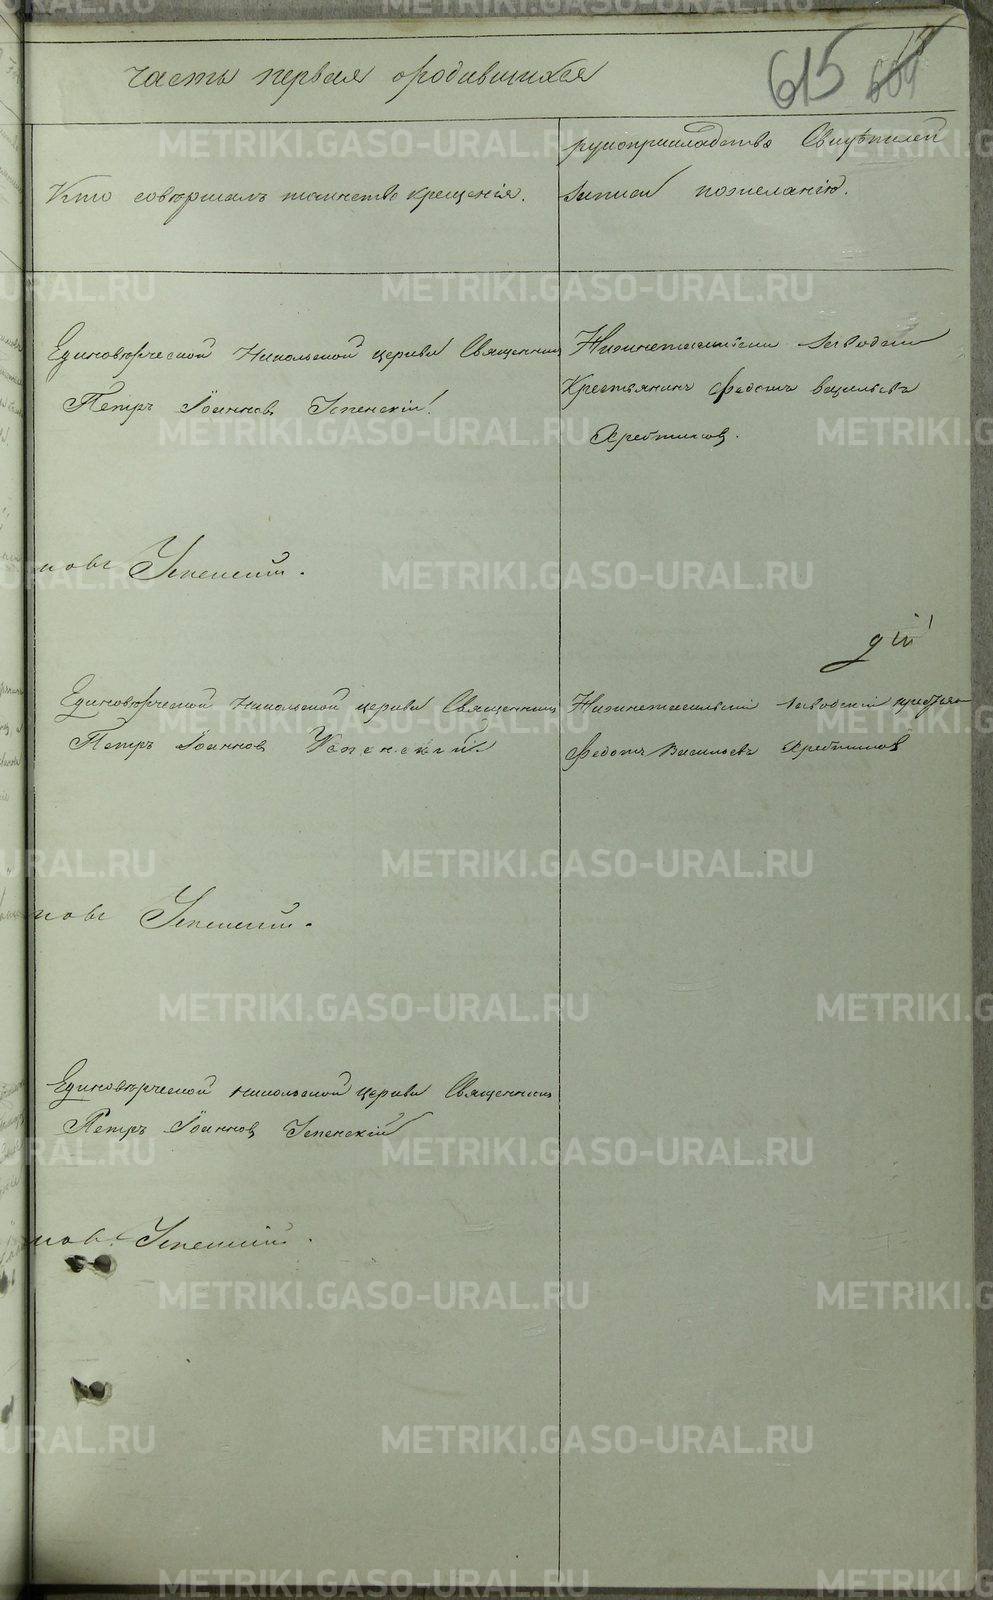 часть первая о родившихся
615
604
Кто совершалъ таинство крещенія.
рукоприкладство Свидѣтелей
записи по желанію.
Единовѣрческой Никольской церкви Священникъ
Петръ Іоанновъ Успенскій.
Нижнетагильскій заводскій
Крестьянинъ Федотъ Васильевъ
Хребтиковъ.
новъ Успенскій.
Единовѣрческой Никольской церкви Священникъ
Петръ Іоанновъ Успенскій.
Нижнетагильскій заводскій
Федотъ Васильевъ Хребтиковъ
новъ Успенскій.
Единовѣрческой Никольской церкви Священникъ
Петръ Іоанновъ Успенскій
новъ Успенскій.
METRIKI.GASO-URAL.RU